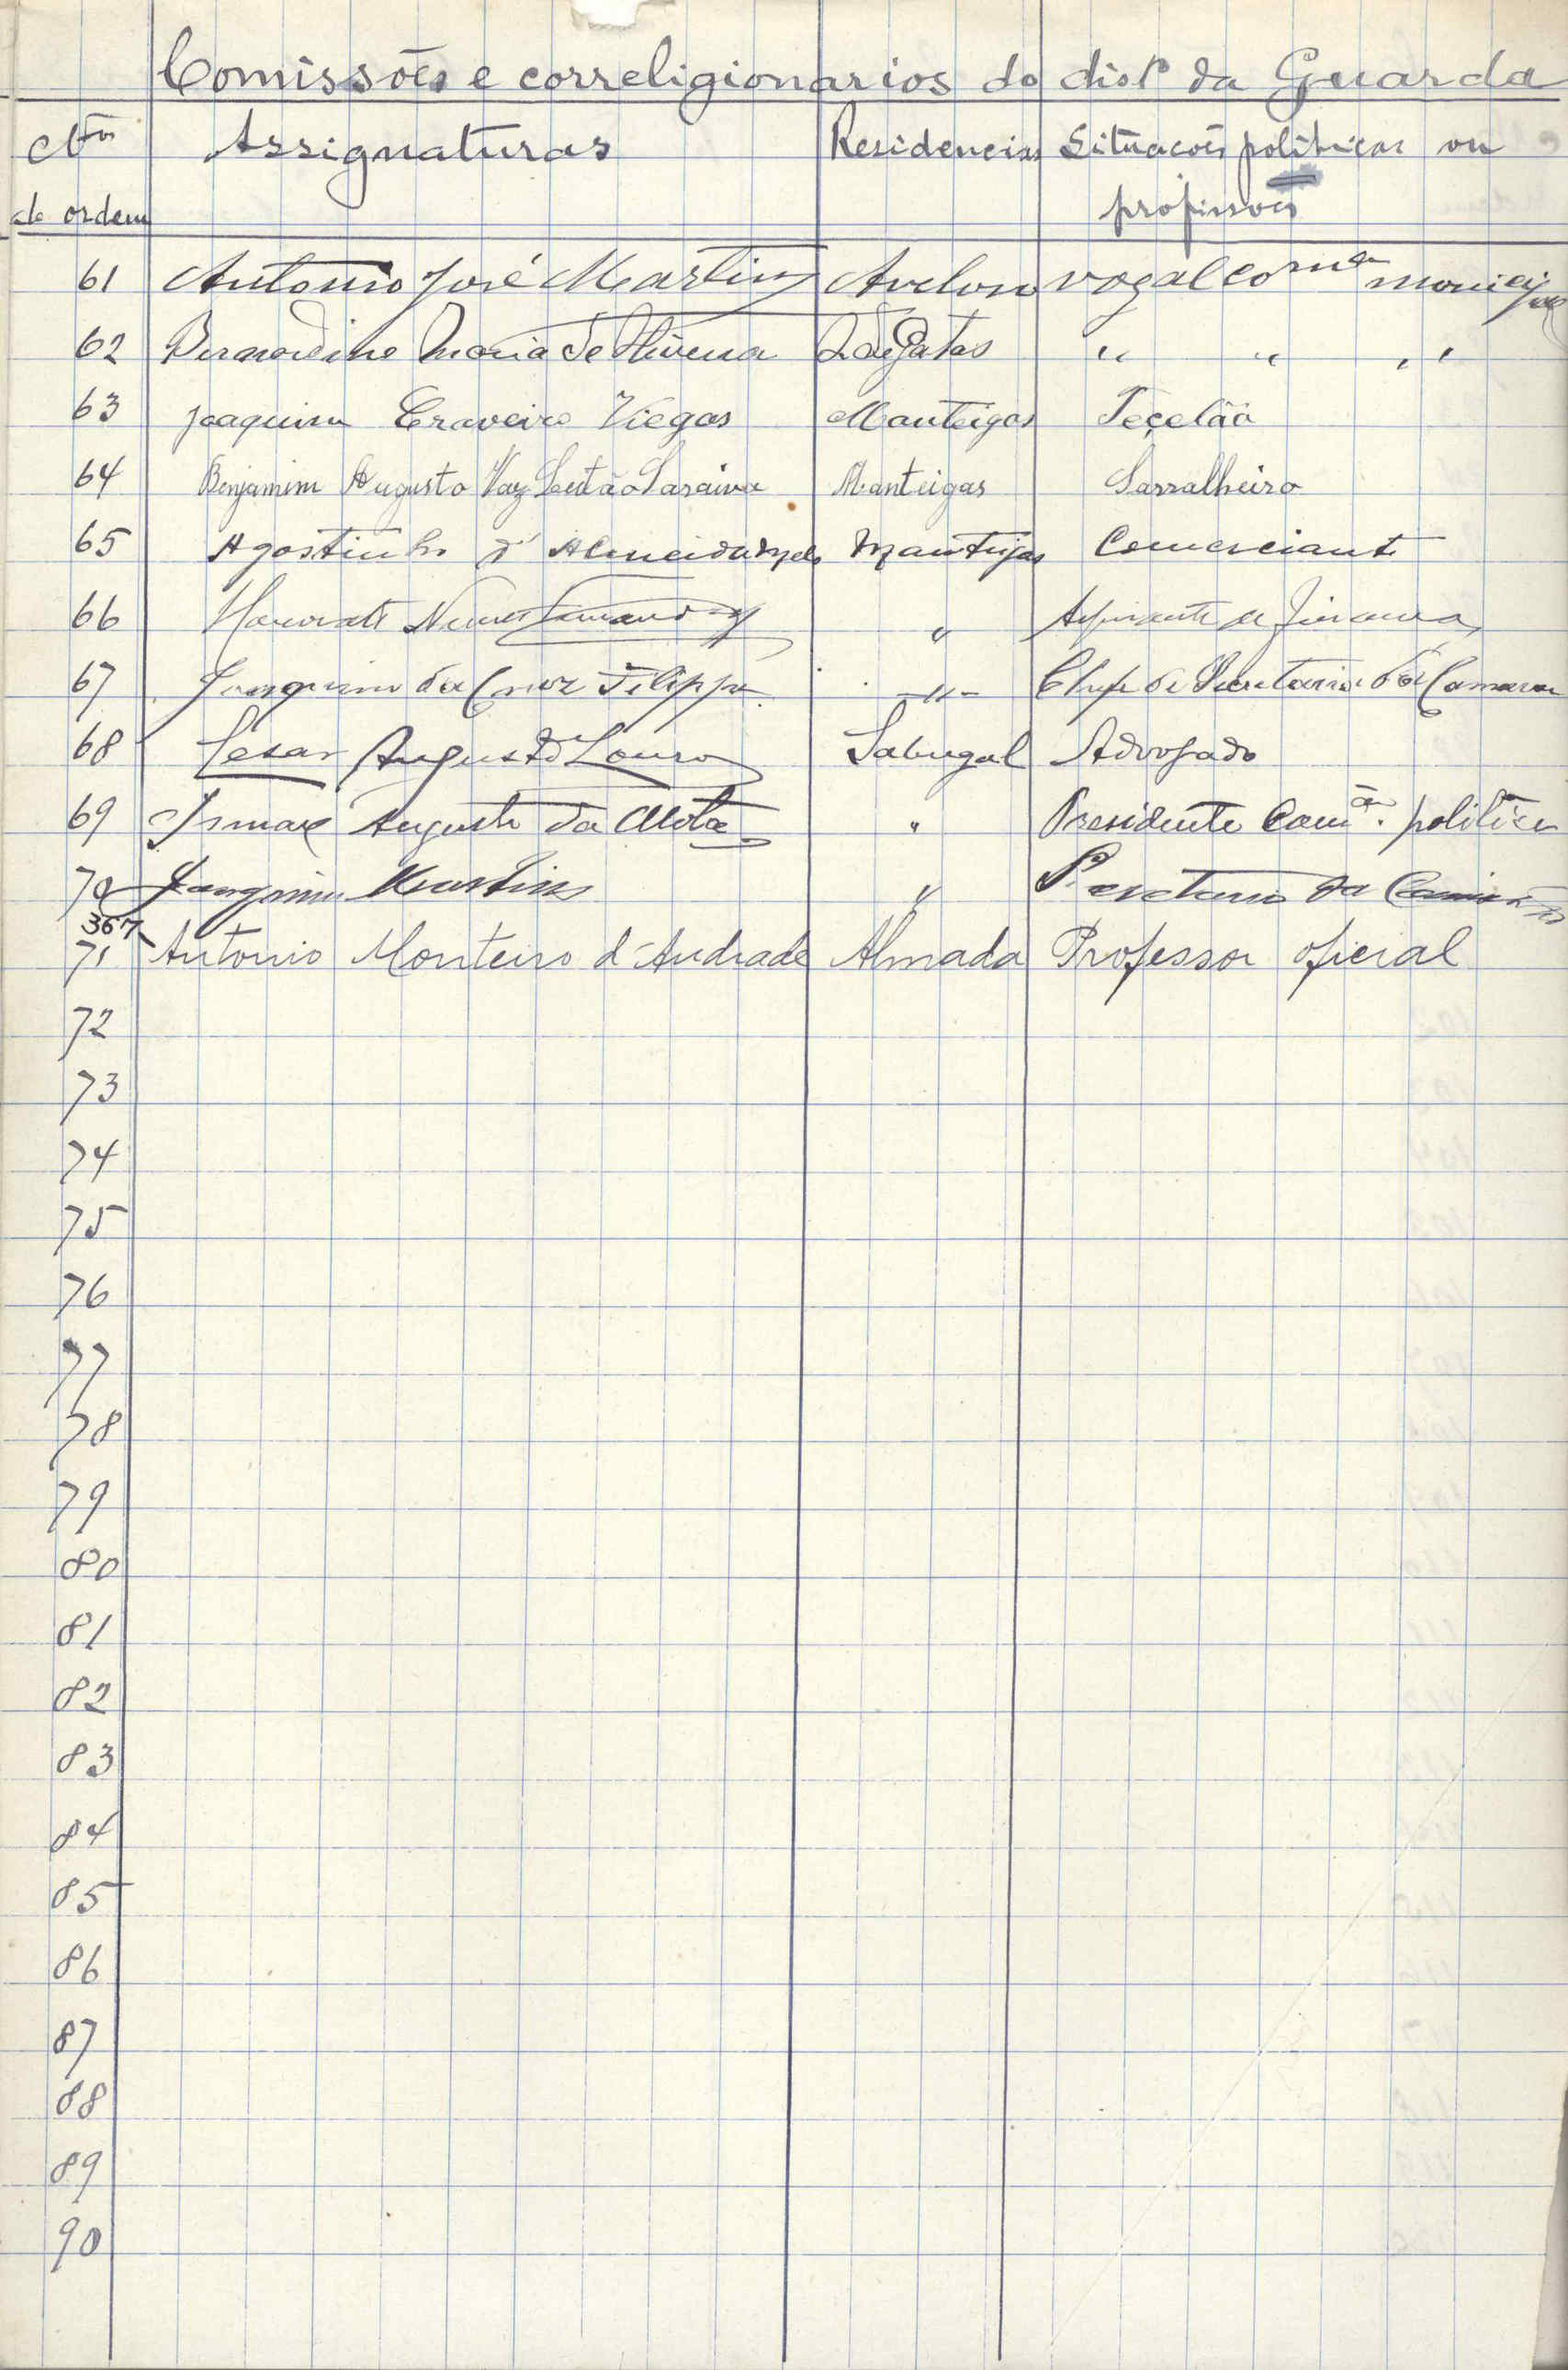 Comissões e correligionarios do dist.º da Guarda
Nºs de ordem Assignaturas Residencias Situacões politicas ou profissões
61 Antonio José Martins vogal comm
62 Bernardino Maria de Oliveira " " "
63 Joaquim Craveiro Viegas Manteigas Teçelão
64 Benjamim Augusto Vaz Leitão Saraiva Manteigas Sarralheiro
65 Agostinho d'Almeida Manteigas Comerciante
66 Nunes Fernandes " Aspirante de Finanças
67 Joaquim da Cruz Filippe -"- Chefe de Secretaria da Camara
68 Cesar Augusto Louro Sabugal Advogado
69 Ismael Augusto da Mota " Presidente Comão. politica
70 Joaquim Martins " Secretario da
367
71 Antonio Monteiro d'Andrade Almada Professor oficial
72
73
74
75
76
77
78
79
80
81
82
83
84
85
86
87
88
89
90